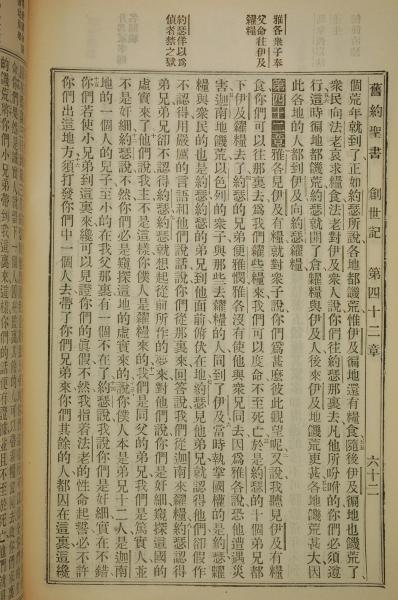 舊約聖書 創世記 第四十二章 六十二
雅各衆子奉
父命往伊及
糴糧
約瑟佯以爲
偵者禁之獄
個荒年就到了正如約瑟所說各地都饑荒惟伊及徧地還有糧食隨後伊及徧地也饑荒了
衆民向法老哀求糧食法老對伊及衆人說你們往約瑟那裏去凡他所吩咐的你們必須遵
行這時徧地都饑荒約瑟就開了倉糶糧與伊及人後來伊及地饑荒更甚各地饑荒甚大因
此各地的人都到伊及向約瑟糴糧
第四十二章 雅各見伊及有糧就對衆子說你們爲甚麼彼此觀望呢又說我聽見伊及有糧
食你們可以往那裏去爲我們糴些糧來我們可以度命不至死亡於是約瑟的十個弟兄都
下伊及糴糧去了約瑟的兄弟便雅憫雅各沒有使他與衆兄同去因爲雅各說恐他遭遇災
害迦南地饑荒以色列的衆子與那些去糴糧的人同到了伊及當時執掌國權的是約瑟糶
糧與衆民的也是約瑟約瑟的弟兄到他面前俯伏在地約瑟見他弟兄就認得他們卻假作
不認得用嚴厲的言語和他們說話說你們從那裏來回答說我們從迦南來糴糧約瑟認得
弟兄弟兄卻不認得約瑟約瑟就想起從前所作的夢來對他們說你們是奸細窺探這國的
虛實來了他們說我主不是這樣你僕人是糴糧來的我們是同父的弟兄我們是篤實人並
不是奸細約瑟說不然你們必是窺探這地的虛實來的說你僕人本是弟兄十二人是迦南
地的一個人的兒子至小的在我父那裏有一個不在了約瑟說我說你們是奸細實在不錯
你們若使小兄弟到這裏來纔可以見證你們的眞假不然我指着法老的性命起誓必不許
你們出這地方須打發你們中一個人去帶了你們兄弟來你們其餘的人都囚在這裏這纔